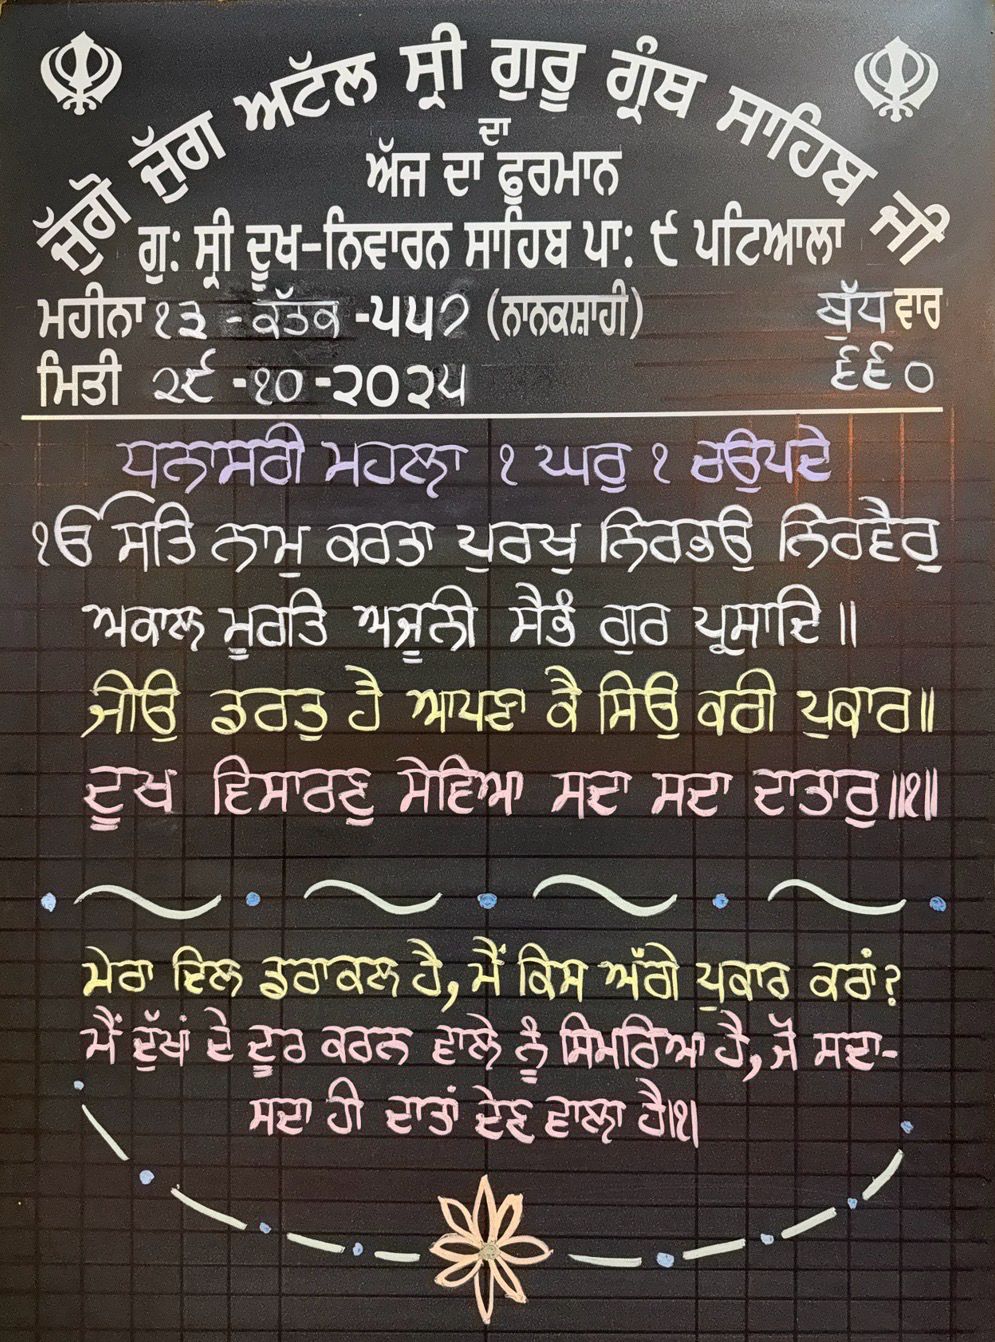 ਜੁੱਗੋ ਜੁੱਗ ਅਟੱਲ ਸ੍ਰੀ ਗੁਰੂ ਗ੍ਰੰਥ ਸਾਹਿਬ ਜੀ
ਦਾ
ਅੱਜ ਦਾ ਫੁਰਮਾਨ
ਗੁ: ਸ੍ਰੀ ਦੂਖ-ਨਿਵਾਰਨ ਸਾਹਿਬ ਪਾ: ੯ ਪਟਿਆਲਾ
ਮਹੀਨਾ ੧੩ - ਕੱਤਕ -੫੫੭ (ਨਾਨਕਸ਼ਾਹੀ) ਬੁੱਧ ਵਾਰ
ਮਿਤੀ ੨੯ -੧੦ -੨੦੨੫ ੬੬੦
ਧਨਾਸਰੀ ਮਹਲਾ ੧ ਘਰੁ ੧ ਚਉਪਦੇ
ੴ ਸਤਿ ਨਾਮੁ ਕਰਤਾ ਪੁਰਖੁ ਨਿਰਭਉ ਨਿਰਵੈਰੁ
ਅਕਾਲ ਮੂਰਤਿ ਅਜੂਨੀ ਸੈਭੰ ਗੁਰ ਪ੍ਰਸਾਦਿ ॥
ਜੀਉ ਡਰਤੁ ਹੈ ਆਪਣਾ ਕੈ ਸਿਉ ਕਰੀ ਪੁਕਾਰ॥
ਦੂਖ ਵਿਸਾਰਣੁ ਸੇਵਿਆ ਸਦਾ ਸਦਾ ਦਾਤਾਰੁ॥੧॥
ਮੇਰਾ ਦਿਲ ਡਰਾਕਲ ਹੈ, ਮੈਂ ਕਿਸ ਅੱਗੇ ਪੁਕਾਰ ਕਰਾਂ?
ਮੈਂ ਦੁੱਖਾਂ ਦੇ ਦੂਰ ਕਰਨ ਵਾਲੇ ਨੂੰ ਸਿਮਰਿਆ ਹੈ, ਜੋ ਸਦਾ-
ਸਦਾ ਹੀ ਦਾਤਾਂ ਦੇਣ ਵਾਲਾ ਹੈ।੧।